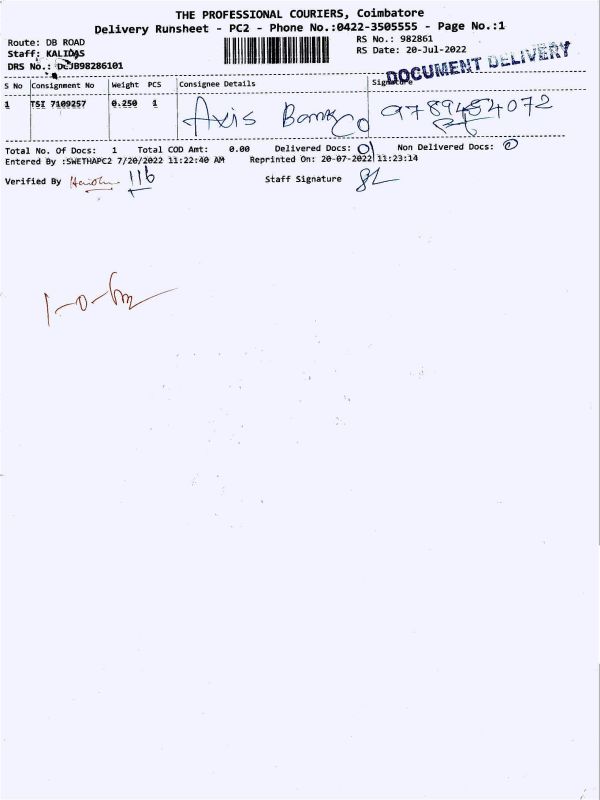 THE PROFESSIONAL COURIERS, Coimbatore
Delivery Runsheet - PC2 - Phone No.:0422-3505555 - Page No.:1
Route: DB ROAD
RS No.: 982861
Staff: KALIDAS
RS Date: 20-Jul-2022
DRS No.: DCJB98286101
DOCUMENT DELIVERY
S No Consignment No Weight PCS Consignee Details Signature
1 TSI 7109257 0.250 1 Axis Bank 9789454072
Total No. Of Docs: 1 Total COD Amt: 0.00 Delivered Docs: 01 Non Delivered Docs: 0
Entered By :SWETHAPC2 7/20/2022 11:22:40 AM Reprinted On: 20-07-2022 11:23:14
Verified By 116 Staff Signature